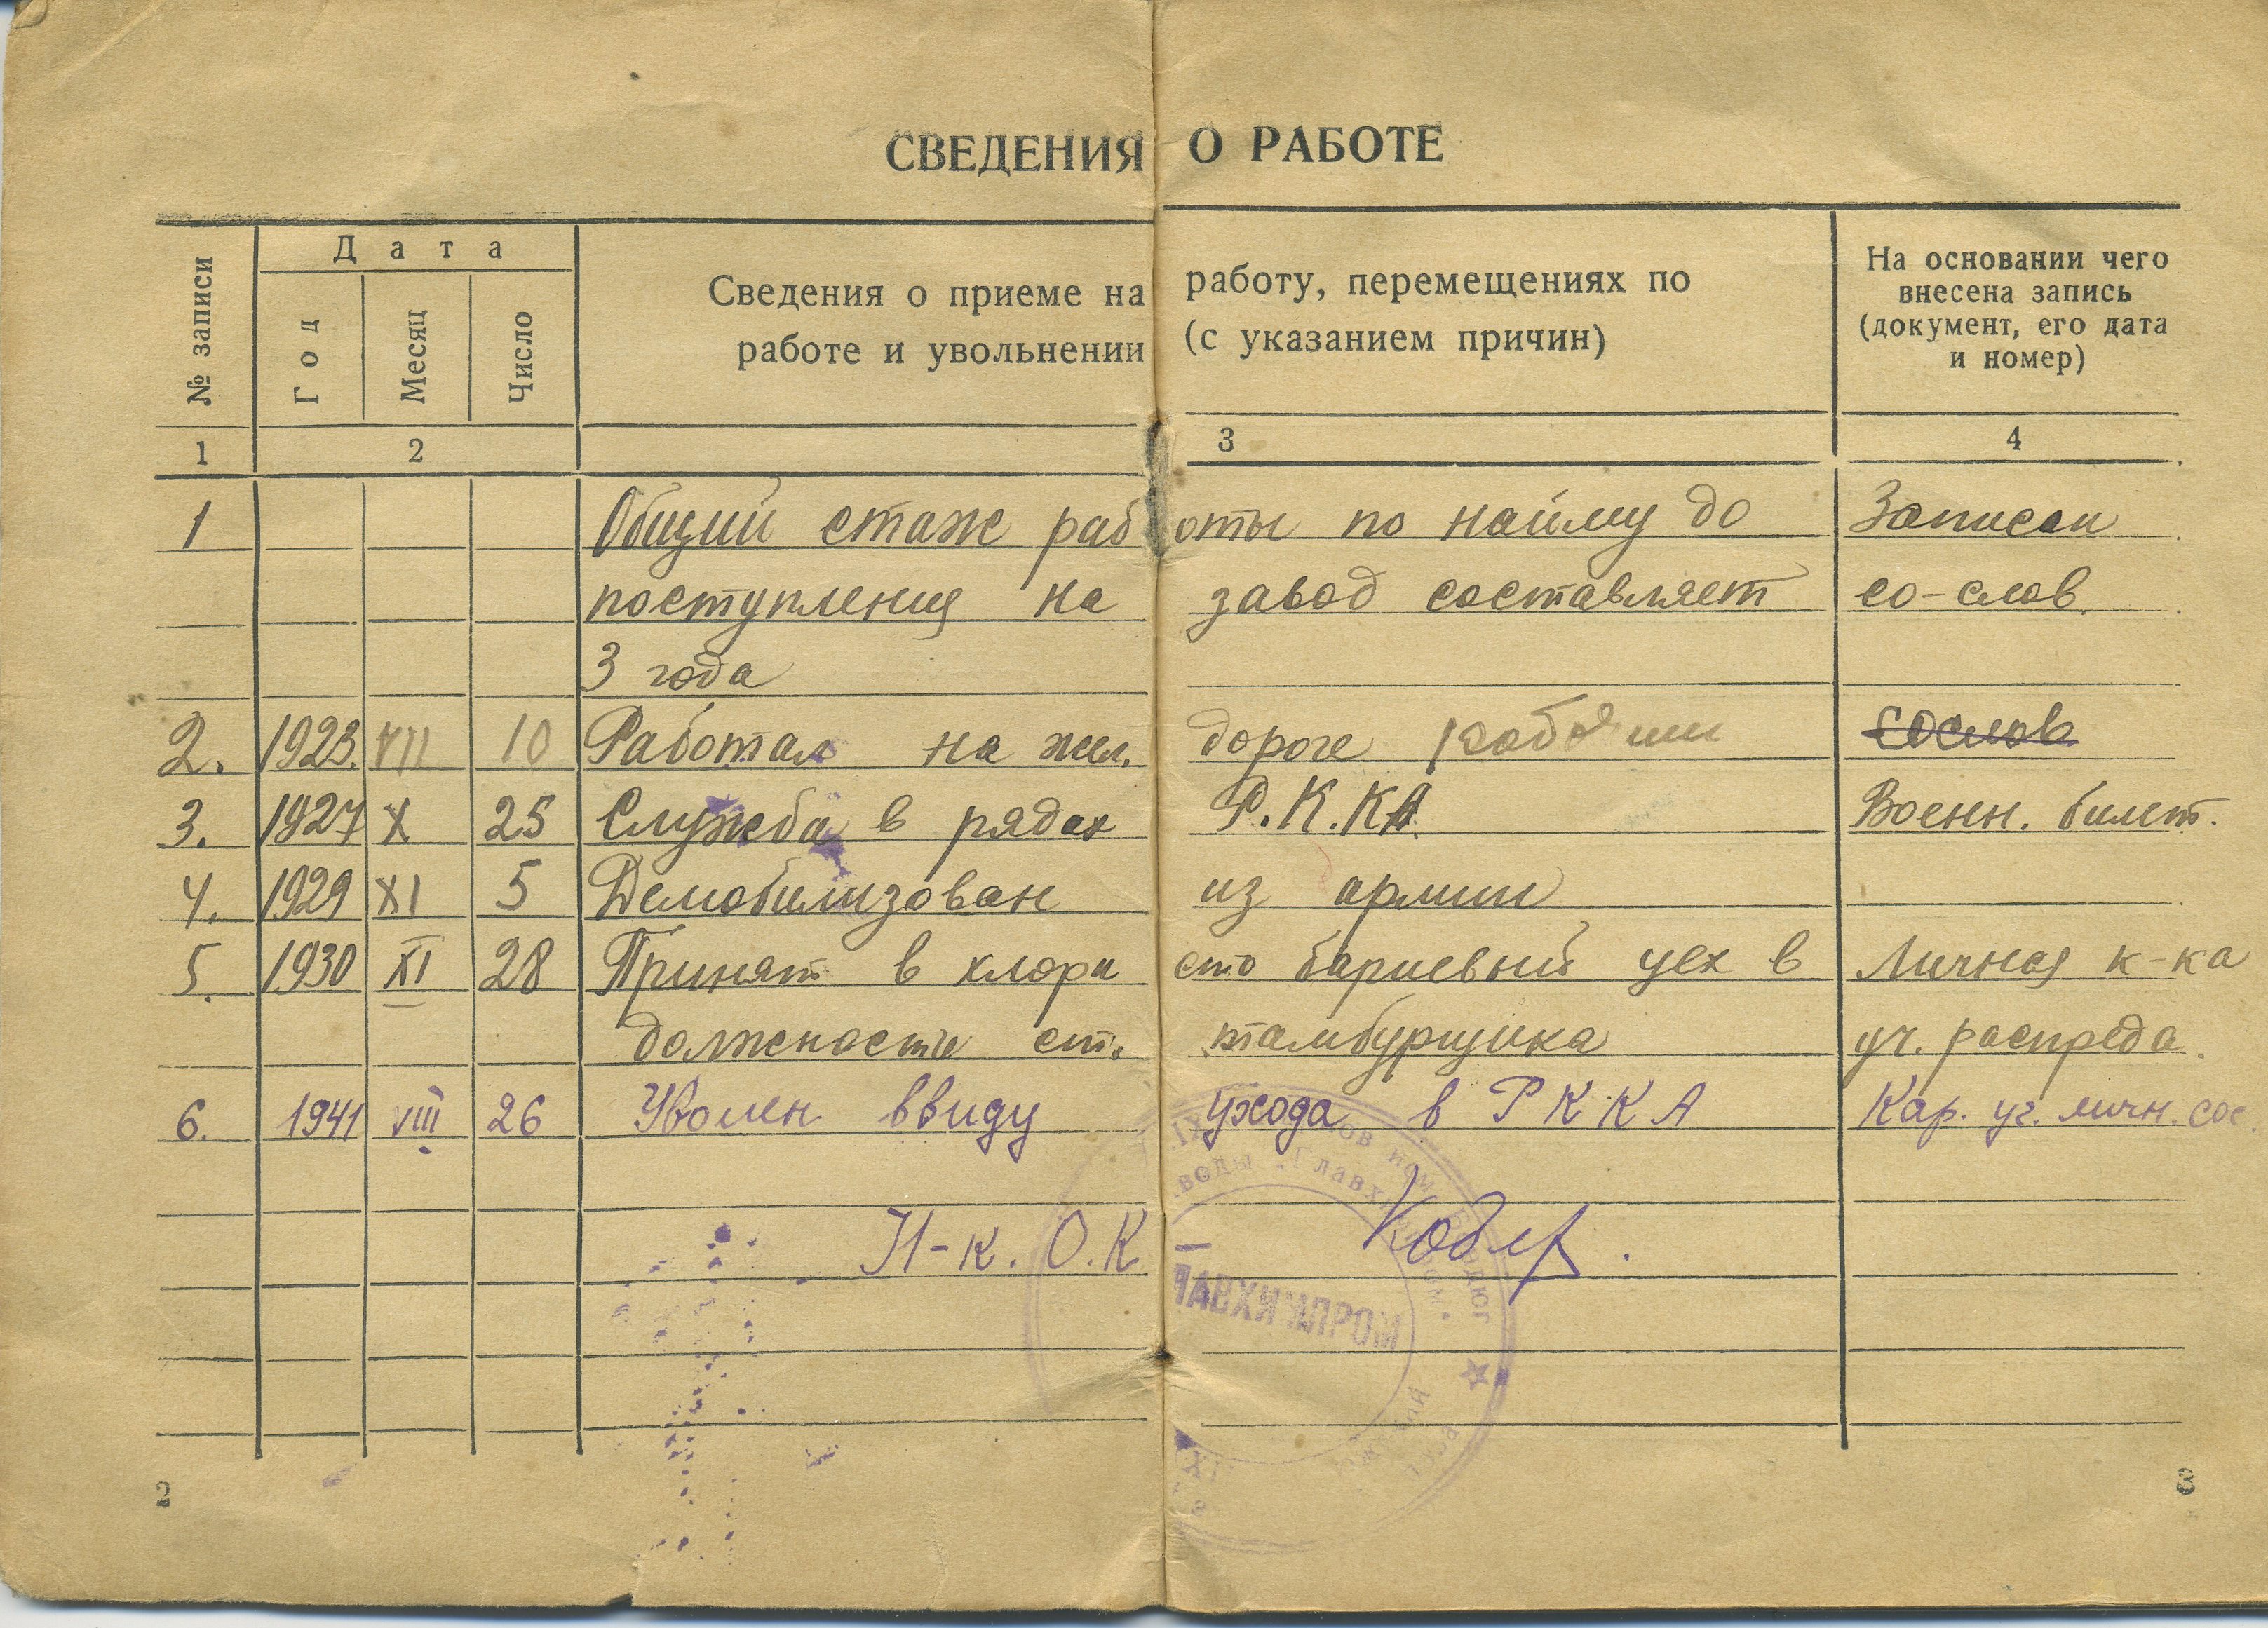 СВЕДЕНИЯ О РАБОТЕ
№ записи
Дата
Год
Месяц
Число
Сведения о приеме на работу, перемещениях по
работе и увольнении (с указанием причин)
На основании чего
внесена запись
(документ, его дата
и номер)
1 2 3 4
1 Общий стаж работы по найму до Записан
поступления на завод составляет со-слов
3 года
2. 1923. VII 10 Работал на жел. дороге рабочим сослов
3. 1927 X 25 Служба в рядах Р.К.КА Военн. билет.
4. 1929 XI 5 Демобилизован из армии
5. 1930 XI 28 Принят в хлори сто бариевый цех в Личная к-ка
должности ст. тамбурщика уч. распреда.
6. 1941 VIII 26 Уволен ввиду ухода в РККА Кар. уч. личн. сос.
Н-к. О.К
ЛАВХИМПРОМ
2 3